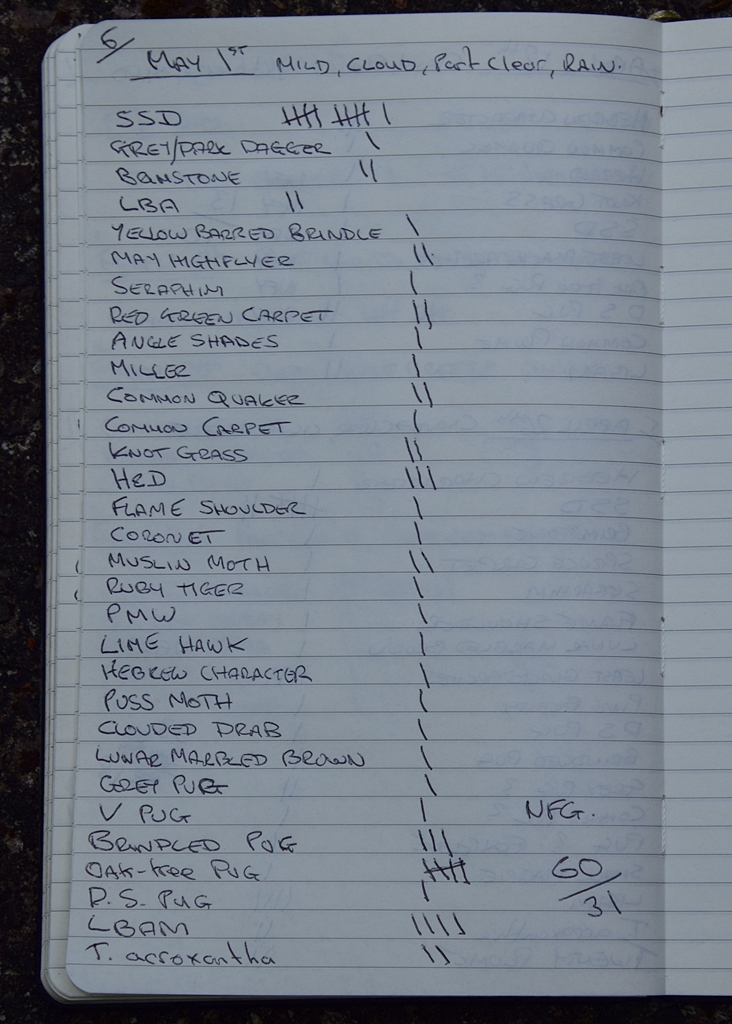 6/
MAY 1ST MILD, CLOUD, Part Clear, RAIN.
SSD |||| |||| |
GREY/DARK DAGGER |
BRIMSTONE ||
LBA ||
YELLOW BARRED BRINDLE |
MAY HIGHFLYER ||
SERAPHIM |
RED GREEN CARPET ||
ANGLE SHADES |
MILLER |
COMMON QUAKER ||
COMMON CARPET |
KNOT GRASS ||
H&D |||
FLAME SHOULDER |
CORONET |
MUSLIN MOTH ||
RUBY TIGER |
PMW |
LIME HAWK |
HEBREW CHARACTER |
PUSS MOTH |
CLOUDED DRAB |
LUNAR MARBLED BROWN |
GREY PUG |
V PUG | NFG.
BRINDLED PUG |||
OAK-tree PUG |||| 60/31
D.S. PUG |
LBAM ||||
T. acroxantha ||